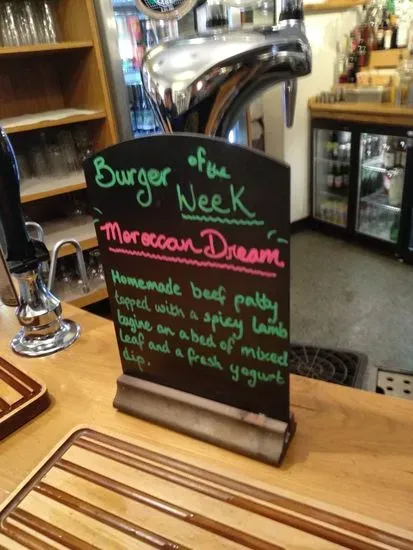 Burger of the
Week
Moroccan Dream
Homemade beef patty
topped with a spicy lamb
tagine on a bed of mixed
leaf and a fresh yogurt
dip.